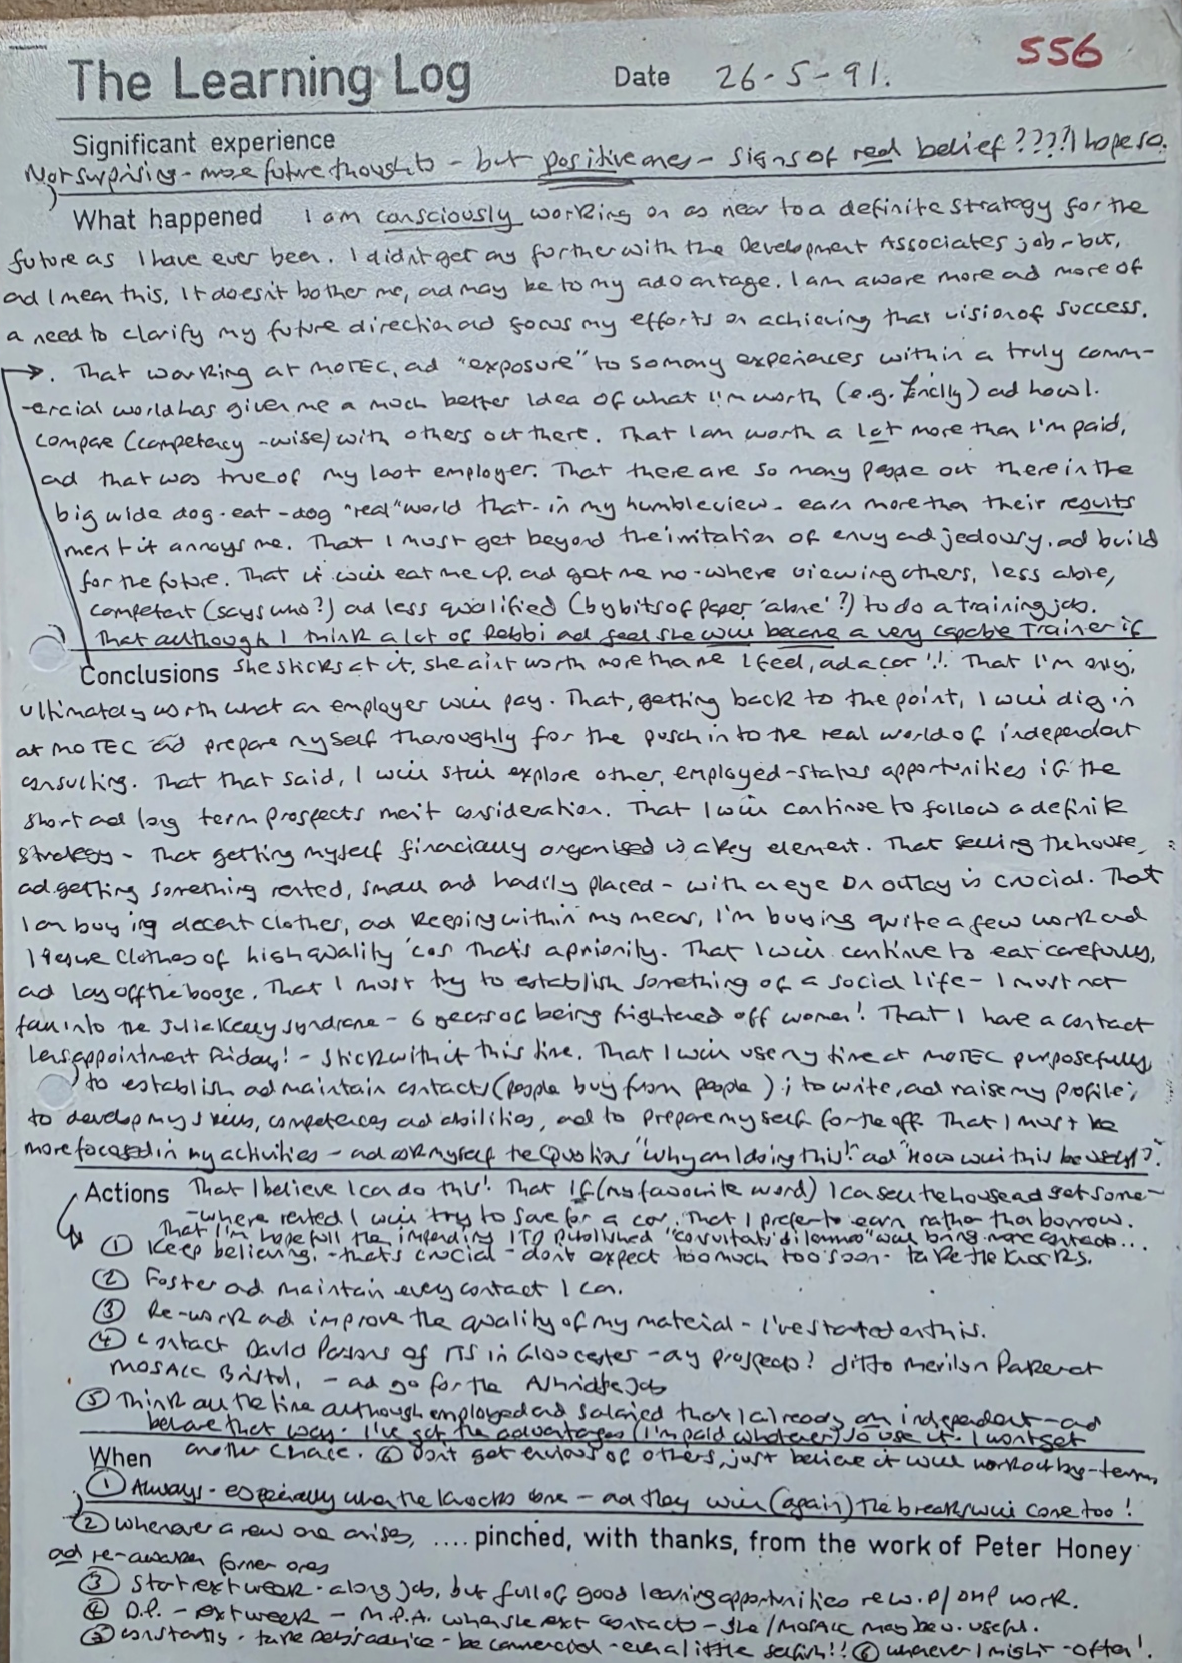 556
The Learning Log Date 26-5-91.
Significant experience
Not surprising - more future thoughts - but positive ones - signs of real belief???? I hope so.
What happened I am consciously working on as near to a definite strategy for the
future as I have ever been. I didn't get any further with the Development Associates job - but,
ad I mean this, it doesn't bother me, ad may be to my advantage. I am aware more ad more of
a need to clarify my future direction ad focus my efforts on achieving that vision of success.
→. That working at MOTEC, ad "exposure" to so many experiences within a truly comm-
-ercial world has given me a much better idea of what I'm worth (e.g. fincilly) ad how I
compare (competency-wise) with others out there. That I am worth a lot more than I'm paid,
ad that was true of my last employer. That there are so many people out there in the
big wide dog-eat-dog "real" world that - in my humble view - earn more than their results
merit it annoys me. That I must get beyond the imitation of envy ad jealousy, ad build
for the future. That it will eat me up, ad get me no-where viewing others, less able,
competent (says who?) ad less qualified (by bits of paper 'alone'?) to do a training job.
That although I think a lot of Robbi ad feel she will become a very capable Trainer if
Conclusions she sticks at it, she ain't worth more than me I feel, ad a car!!. That I'm only,
ultimately worth what an employer will pay. That, getting back to the point, I will dig in
at MOTEC ad prepare myself thoroughly for the push in to the real world of independent
consulting. That that said, I will still explore other, employed-status opportunities if the
short ad long term prospects merit consideration. That I will continue to follow a definite
strategy - That getting myself financially organised is a key element. That selling the house,
ad getting something rented, small and handily placed - with an eye on outlay is crucial. That
I am buying decent clothes, ad keeping within my means, I'm buying quite a few work ad
leisure clothes of high quality 'cos that's a priority. That I will continue to eat carefully,
ad lay off the booze. That I must try to establish something of a social life - I must not
fall into the Julie Kelly syndrome - 6 years of being frightened off women! That I have a contact
lens appointment Friday! - stick with it this time. That I will use my time at MOTEC purposefully,
to establish ad maintain contacts (people buy from people); to write, ad raise my profile;
to develop my skills, competences ad abilities, ad to prepare myself for the off. That I must be
more focused in my activities - ad ask myself the Questions "Why am I doing this?" ad "How will this be useful?".
Actions That I believe I can do this! That If (my favourite word) I can sell the house ad get some-
-where rented I will try to save for a car. That I prefer to earn rather than borrow.
That I'm hopefull the impending ITD published "consultants dilemma" will bring more contacts...
① Keep believing, - that's crucial - don't expect too much too soon - take the knocks.
② Foster ad maintain every contact I can.
③ Re-work ad improve the quality of my material - I've started on this.
④ Contact David Parsons of ITS in Gloucester - any prospects? ditto Merilyn Parker at
MOSAIC Bristol, - ad go for the Ashridge job
⑤ Think all the time although employed ad salaried that I already am independent - ad
behave that way. I've got the advantages (I'm paid whatever) so use it. I won't get
When another chance. ⑥ Don't get envious of others, just believe it will work out long-term,
① Always - especially when the knocks come - ad they will (again) the breaks will come too!
② Whenever a new one arises, .... pinched, with thanks, from the work of Peter Honey
ad re-awaken former ones
③ Start next week - a long job, but full of good learning opportunities re W.P/OHP work.
④ D.P. - next week - M.P.A. when she next contacts - she/MOSAIC may be v. useful.
⑤ Constantly - take advice - be commercial - even a little selfish!! ⑥ Whenever I might - often!